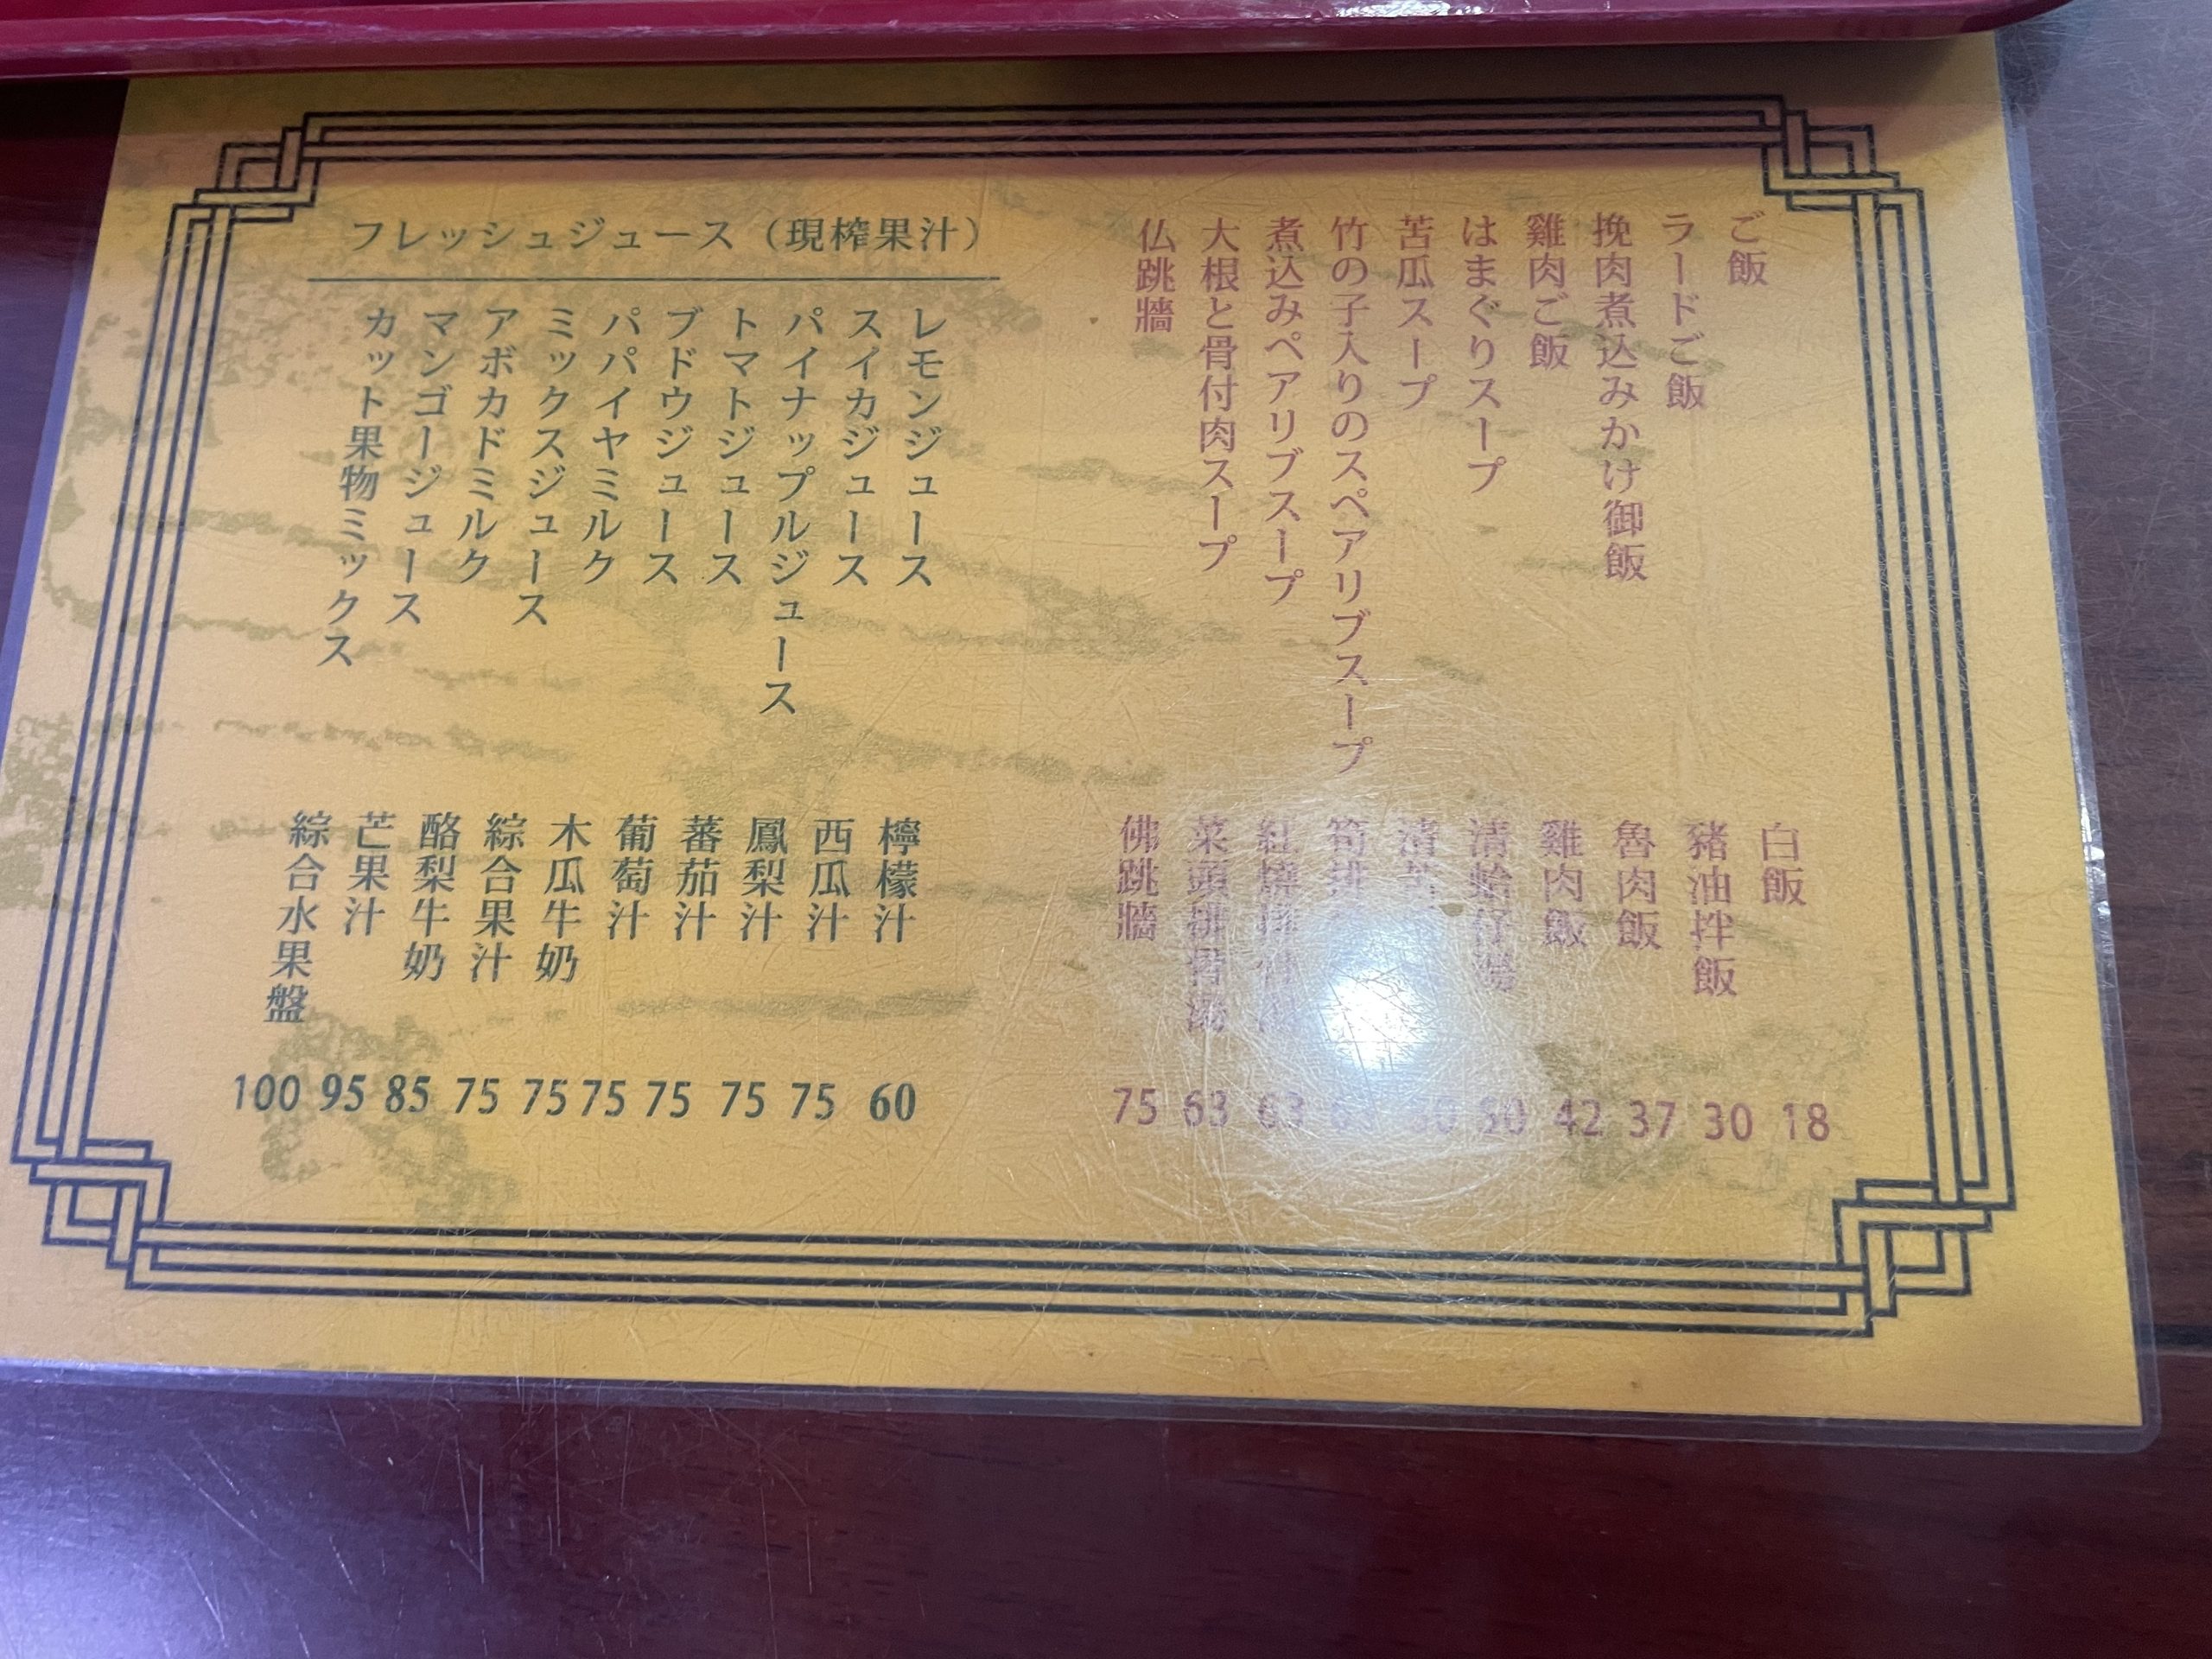 ご飯
白飯
18
ラードご飯
豬油拌飯
30
挽肉煮込みかけ御飯
魯肉飯
37
雞肉ご飯
雞肉飯
42
はまぐりスープ
清蛤仔湯
50
苦瓜スープ
竹の子入りのスペアリブスープ
煮込みペアリブスープ
63
大根と骨付肉スープ
菜頭排骨湯
63
仏跳牆
佛跳牆
75
フレッシュジュース（現榨果汁）
レモンジュース
檸檬汁
60
スイカジュース
西瓜汁
75
パイナップルジュース
鳳梨汁
75
トマトジュース
蕃茄汁
75
ブドウジュース
葡萄汁
75
パパイヤミルク
木瓜牛奶
75
ミックスジュース
綜合果汁
75
アボカドミルク
酪梨牛奶
85
マンゴージュース
芒果汁
95
カット果物ミックス
綜合水果盤
100